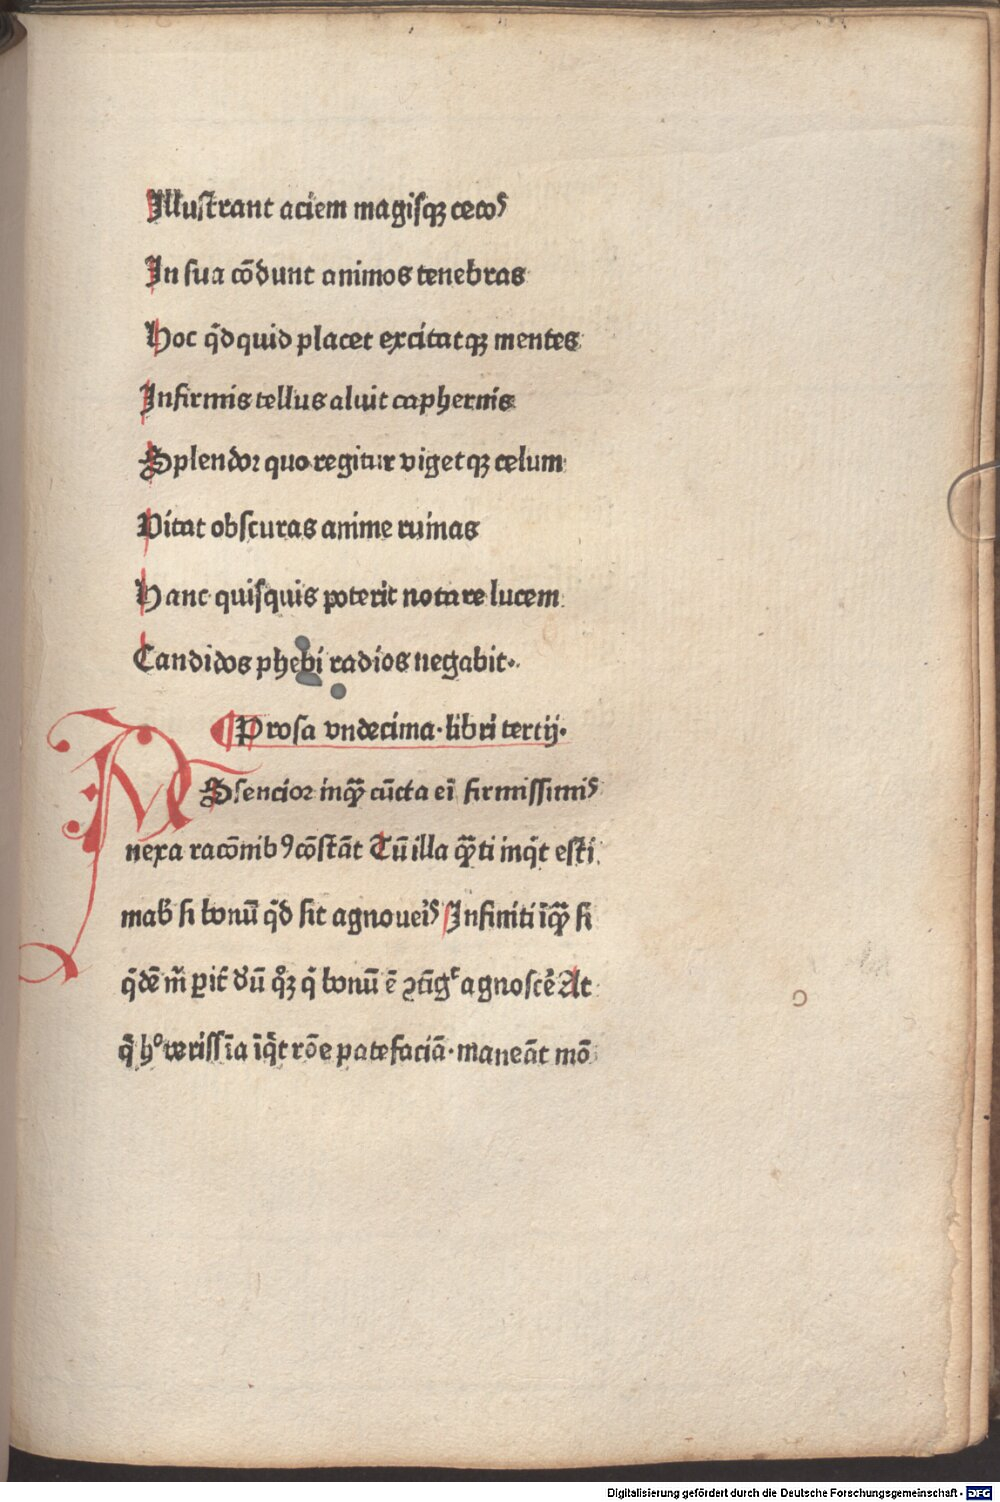 Illustrant aciem magisqꝫ cecoˢ
In sua cōdunt animos tenebras
Hoc q̄dquid placet excitatqꝫ mentes
Infirmis tellus aluit caphernis
Splendor quo regitur vigetqꝫ celum
Vitat obscuras anime ruinas
Hanc quisquis poterit notare lucem
Candidos phebi radios negabit.
¶Prosa vndecima.libri tertij.
ASsencior inqͣꝫ cūcta eī firmissimiˢ
nexa racōnibꝰ cōstāt Tū illa qͣ̄ti inqͥt esti
mab̕ si bonū qͥd sit agnoueriˢ Infiniti īqͣꝫ si
qͥdē m̄ ꝑit̕ dū qͦꝫ qͥ bonū ē ꝯtīgᵗ agnoscē At
qͥ hͦ verissīa īqͥt rōe patefaciā.maneāt mō
Digitalisierung gefördert durch die Deutsche Forschungsgemeinschaft - DFG